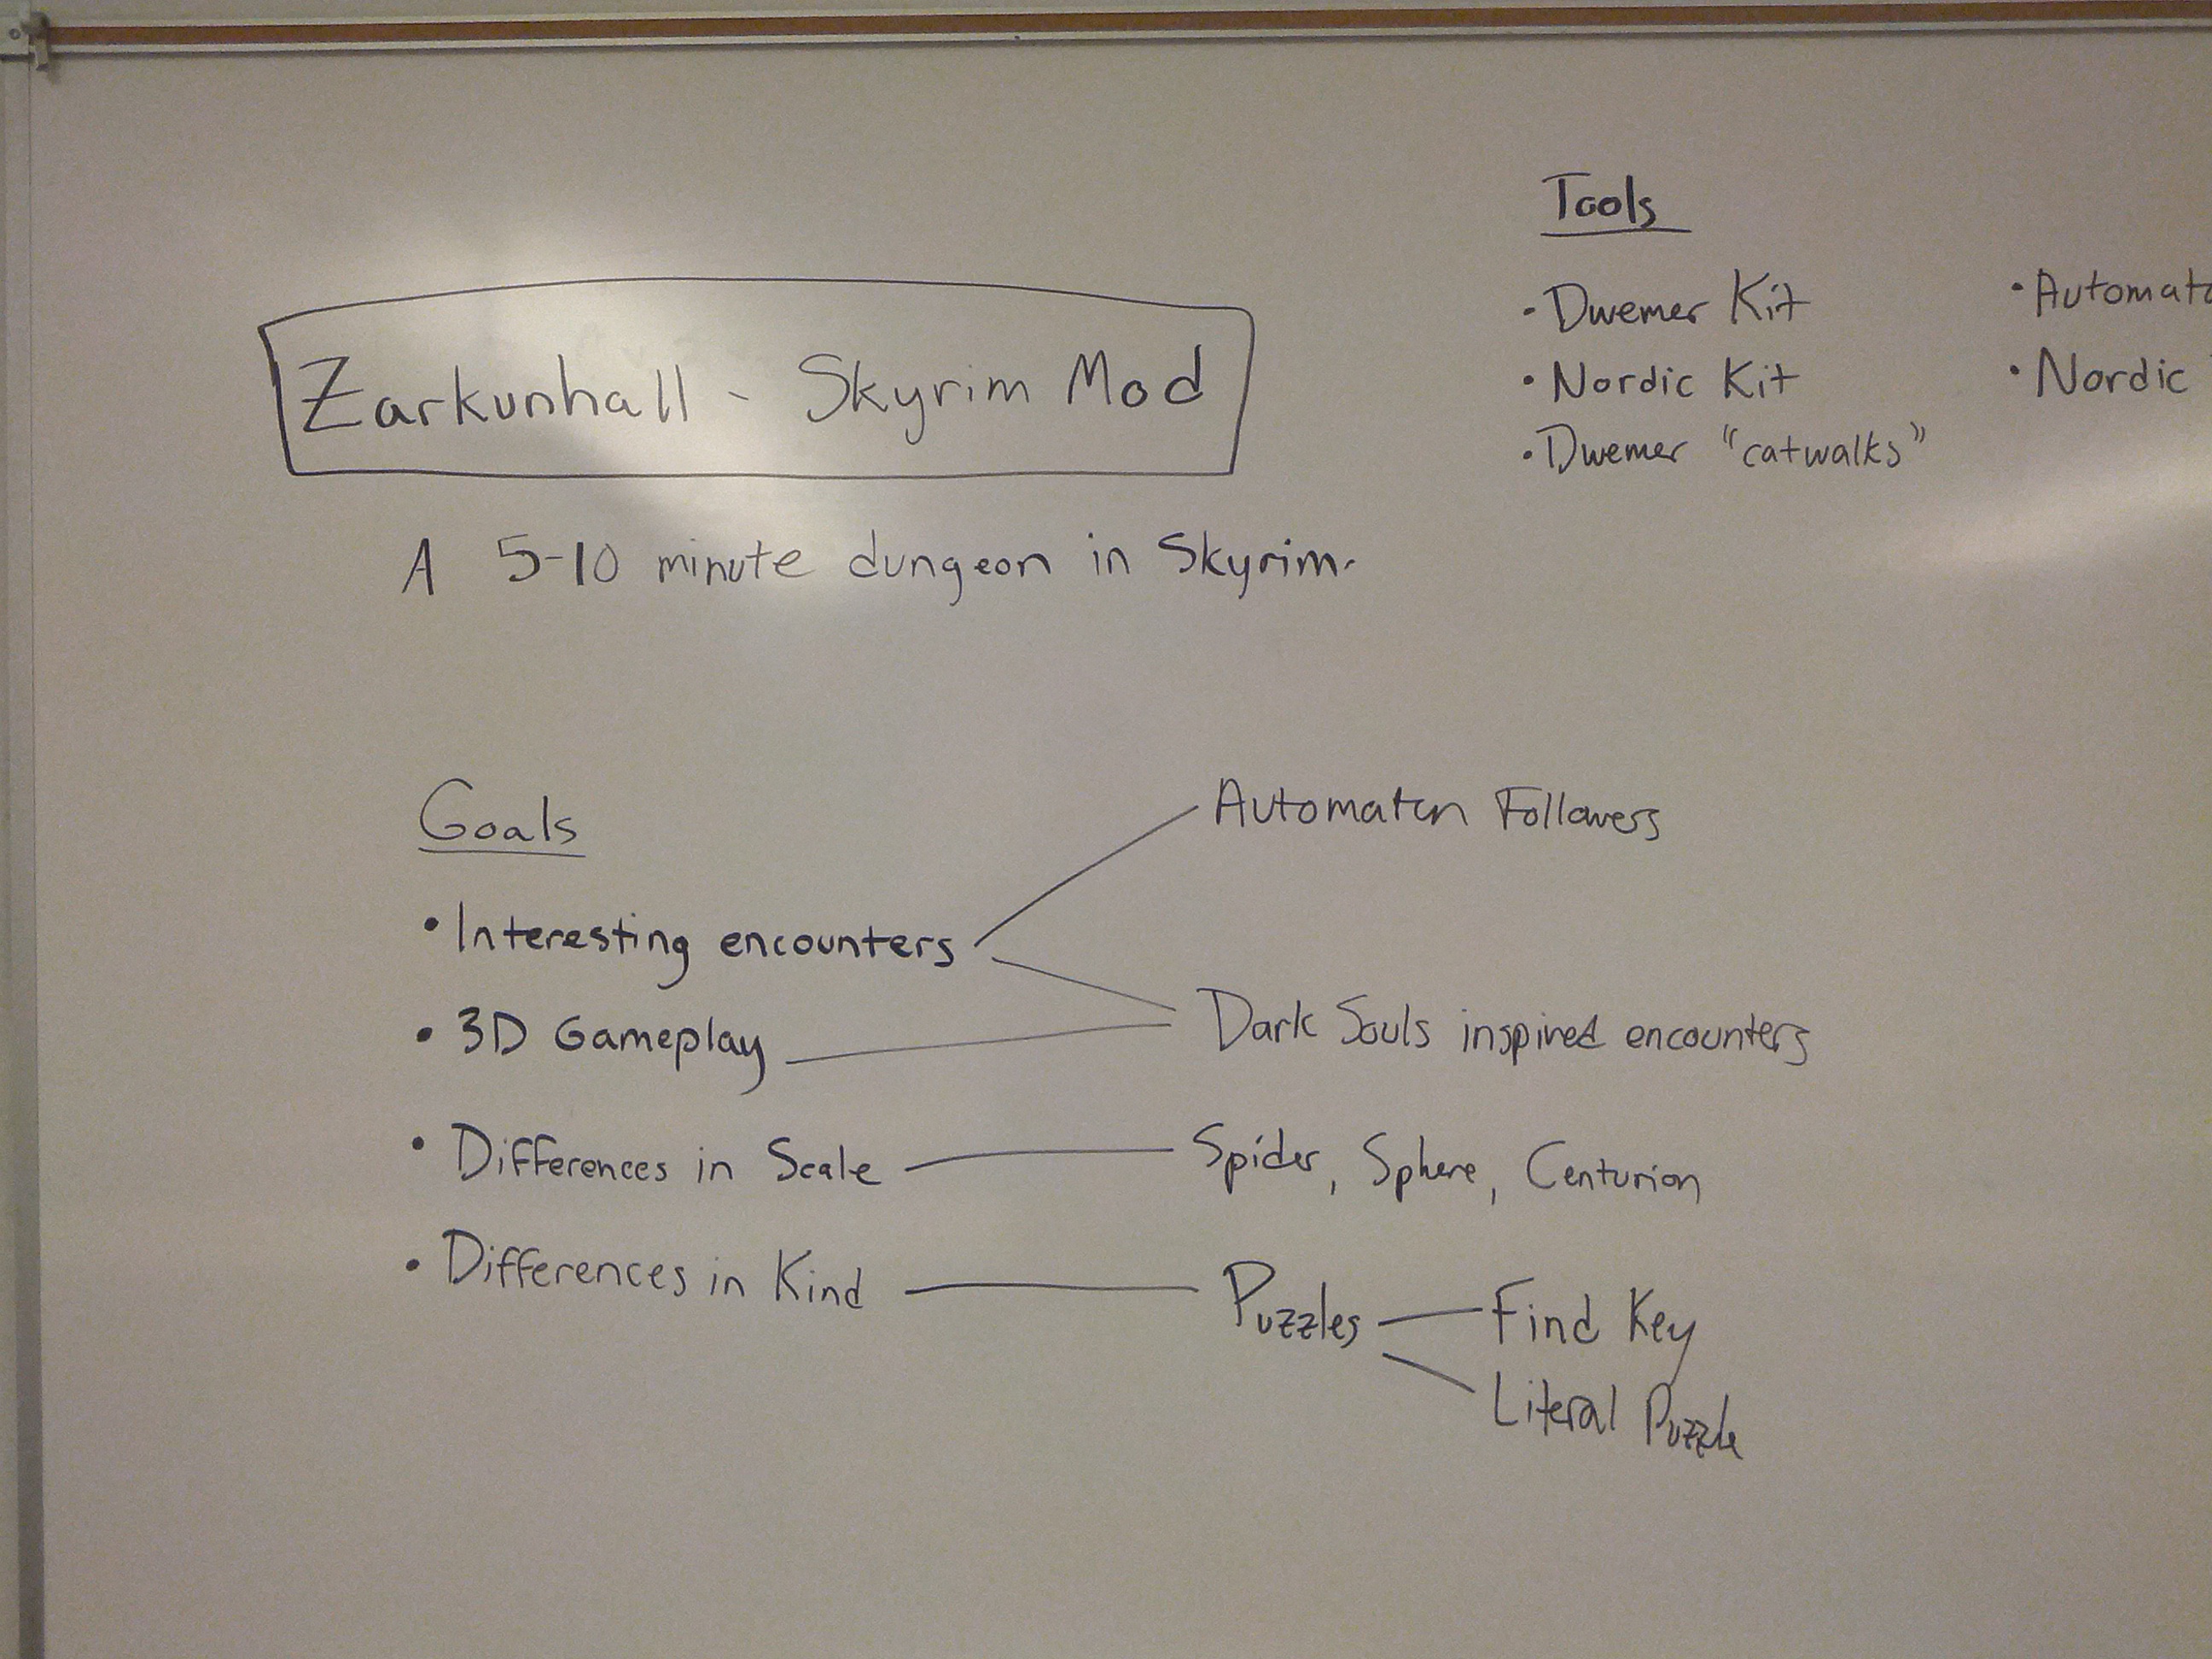 Zarkunhall - Skyrim Mod
A 5-10 minute dungeon in Skyrim.
Tools
• Dwemer Kit
• Nordic Kit
• Dwemer "catwalks"
• Automato
• Nordic
Goals
• Interesting encounters
• 3D Gameplay
• Differences in Scale
• Differences in Kind
Automaton Followers
Dark Souls inspired encounters
Spider, Sphere, Centurion
Puzzles
Find Key
Literal Puzzle